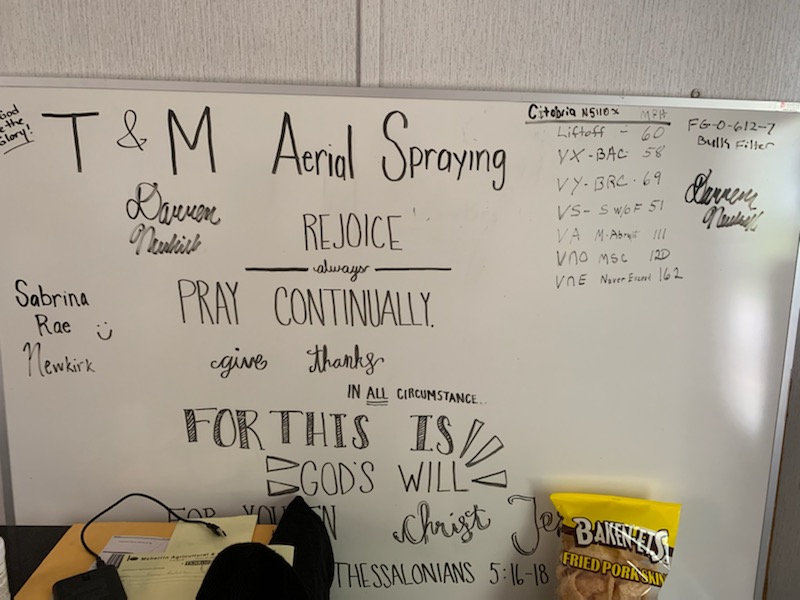 God
the
Glory!
T & M Aerial Spraying
Darren
Newkirk
REJOICE
always
PRAY CONTINUALLY.
give thanks
IN ALL CIRCUMSTANCE...
FOR THIS IS
GOD'S WILL
FOR YOU IN Christ Je
THESSALONIANS 5:16-18
Sabrina
Rae
Newkirk
Citabria N5118X MPH
Liftoff - 60
VX - BAC - 58
VY - BRC - 69
VS - S W/OF 51
VA M-Abrupt 111
VNO MSC 120
VNE Never Exceed 162
FG-0-612-7
Bulk Filter
Darren
Newkirk
BAKEN-ETS
FRIED PORK SKIN
Agricultural &